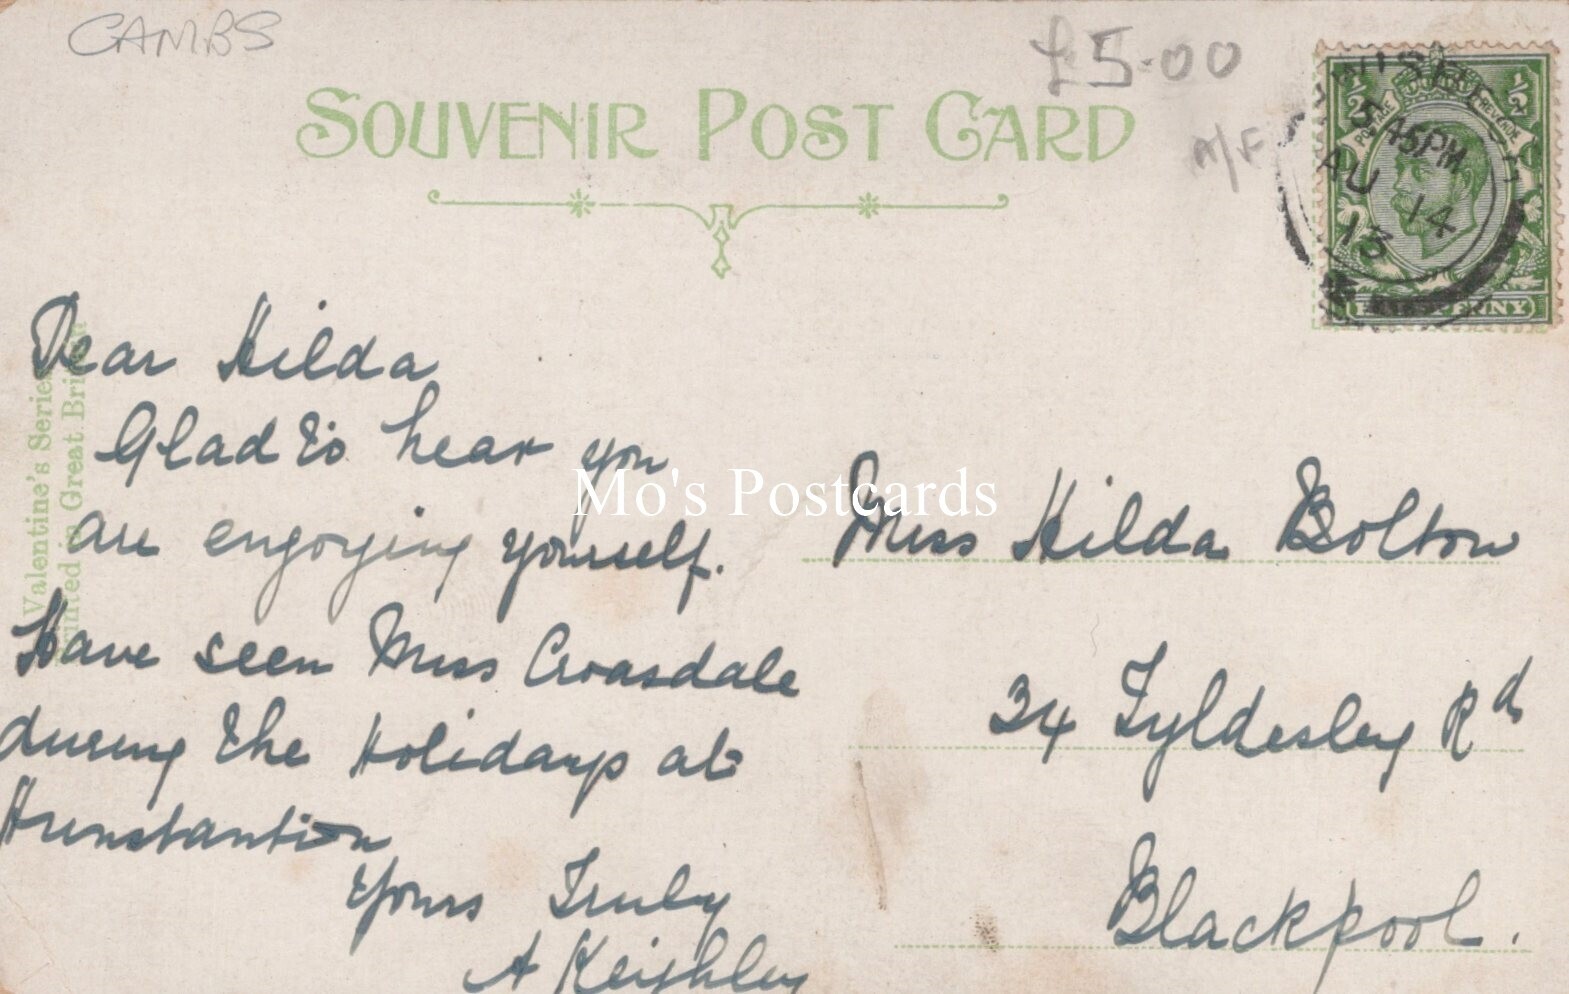 CAMBS
£5.00
A/F
SOUVENIR POST CARD
½ ½
POSTAGE REVENUE
5.45PM
AU 14
13
HALFPENNY
Valentine's Series
Printed in Great Britain
Dear Hilda
Glad to hear you
are engoying yourself.
Have seen Miss Croasdale
during the Holidays at
Hunstantion
Yours Truly
A Keighley
Mo's Postcards
Miss Hilda Bolton
34 Tyldesley Rd
Blackpool.